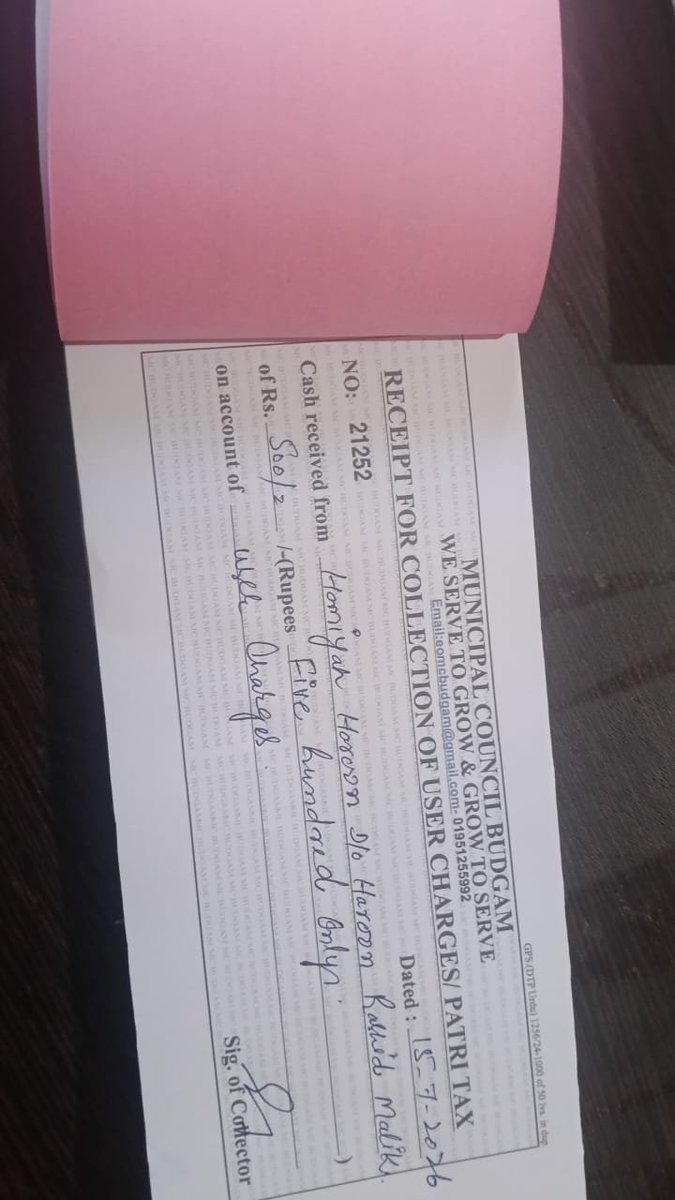 GPS (DTP Units) 1256/24-1000 of 50 lvs. in dup
MUNICIPAL COUNCIL BUDGAM
WE SERVE TO GROW & GROW TO SERVE
Email:eomcbudgam@gmail.com- 01951255992
RECEIPT FOR COLLECTION OF USER CHARGES/ PATRI TAX
NO: 21252 Dated : 15-7-2026
Cash received from Homiyah Haroon D/o Haroon Rashid Malik.
of Rs. 500/= /-(Rupees Five hundred Only. )
on account of User Charges.
Sig. of Collector